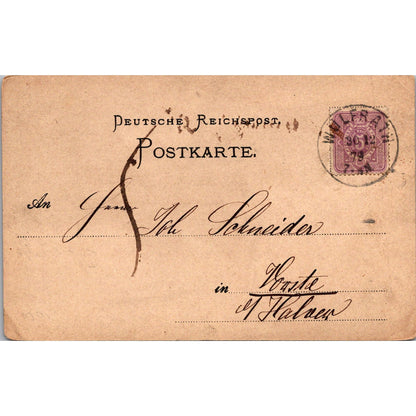 DEUTSCHE REICHSPOST.
POSTKARTE.
WÜLFRATH
30 12
79
An Herrn Joh Schneider
in Voeste
b/ Halver